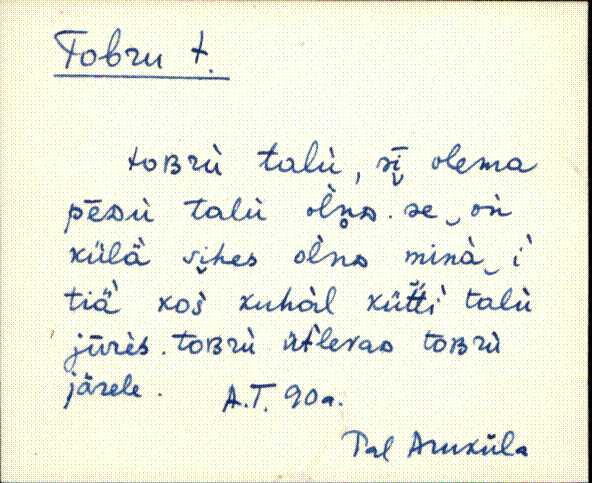 Tobru t.
toʙrù talù, sī̮ olema
pēᴅù talù òln̥ᴅ. se‿on
külä̀ si̮hes òlnᴅ minà‿i
tiä̀ kos̀ kuhàl kütt̆ì talù
jūrès. toʙrù ütlevaᴅ toʙrù
järele. A.T. 90a.
Pal Aruküla